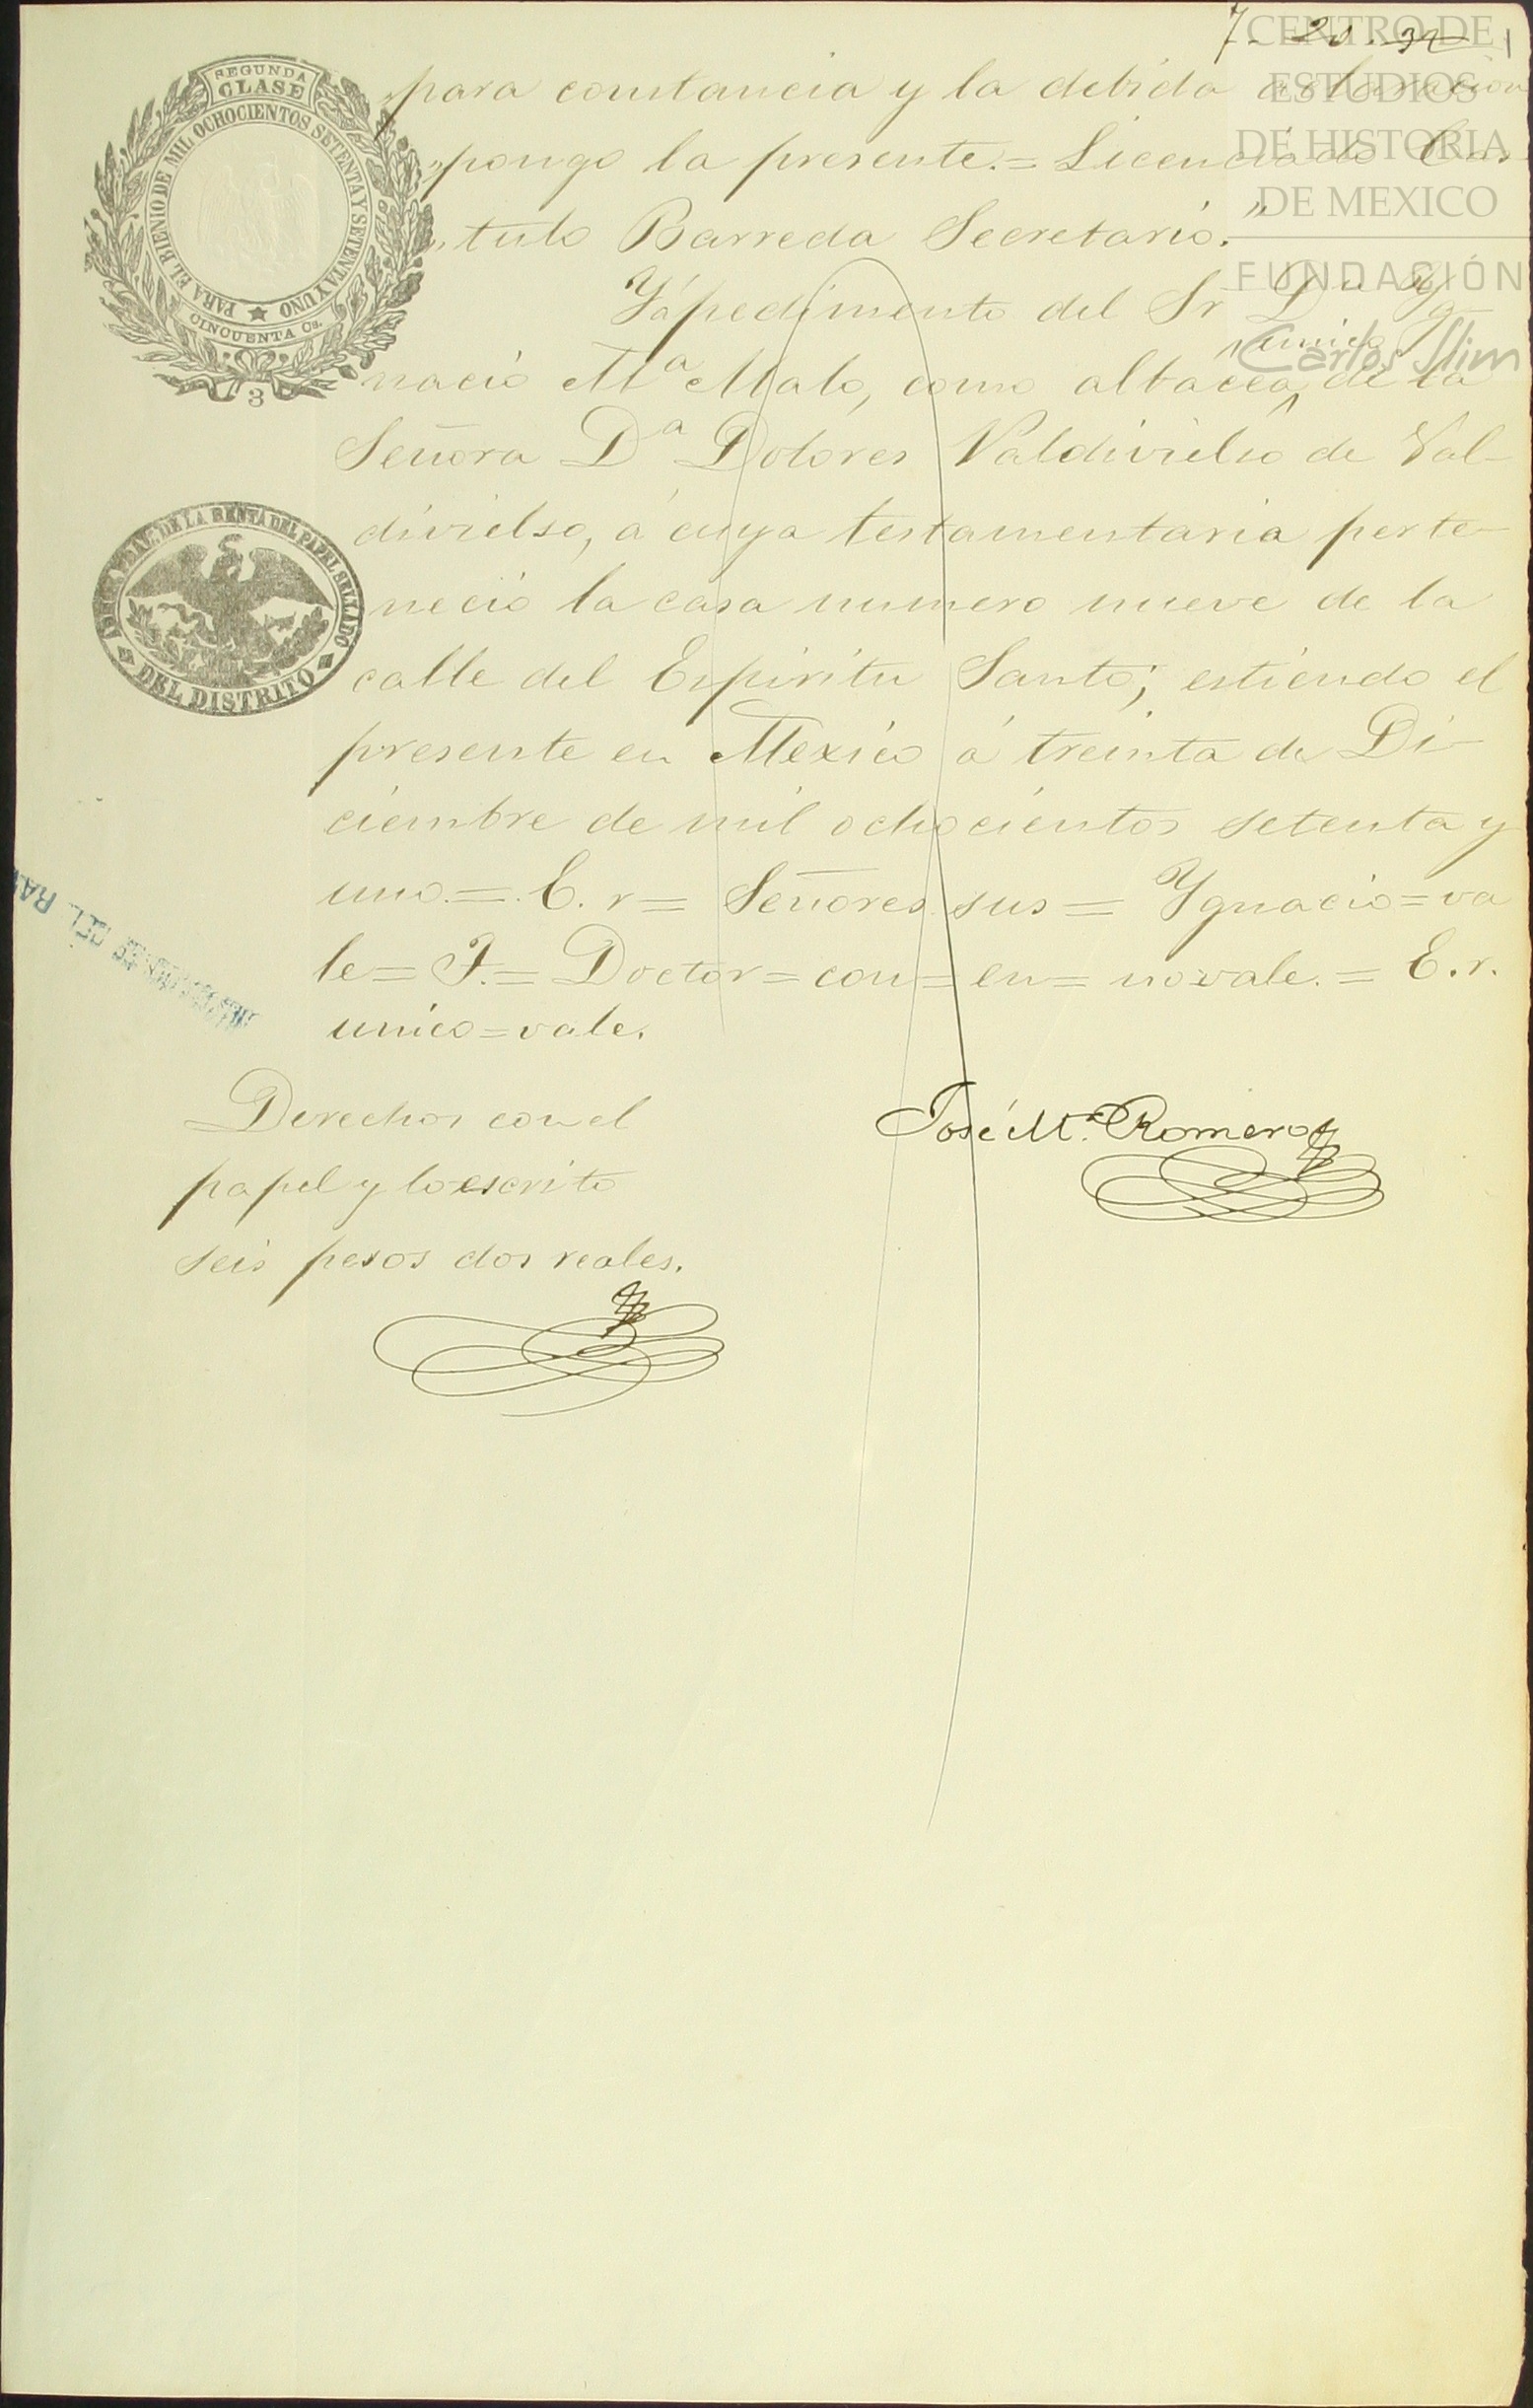 7. 20. 32 1
CENTRO DE
ESTUDIOS
DE HISTORIA
DE MEXICO
FUNDACIÓN
Carlos Slim
SEGUNDA
CLASE
PARA EL BIENIO DE MIL OCHOCIENTOS SETENTA Y SETENTA Y UNO
CINCUENTA Cs.
3
"para constancia y la debida
"pongo la presente.=Licenciado Cás-
"tulo Barreda Secretario."
Y á pedimento del Sr Dn Yg-
nacio Ma Malo, como albacea único de la
Señora Da Dolores Valdivielso de Val-
divielso, á cuya testamentaria perte-
neció la casa numero nueve de la
calle del Espiritu Santo; estiendo el
presente en Mexico á treinta de Di-
ciembre de mil ochocientos setenta y
uno.=E. r=Señores sus=Ygnacio=va
le=T.=Doctor=con=en=no vale.=E. r.
unico=vale.
DE LA RENTA DEL PAPEL SELLADO
DEL DISTRITO
DEL RA
Derechos con el
papel y lo escrito
seis pesos dos reales.
José Ma. Romero